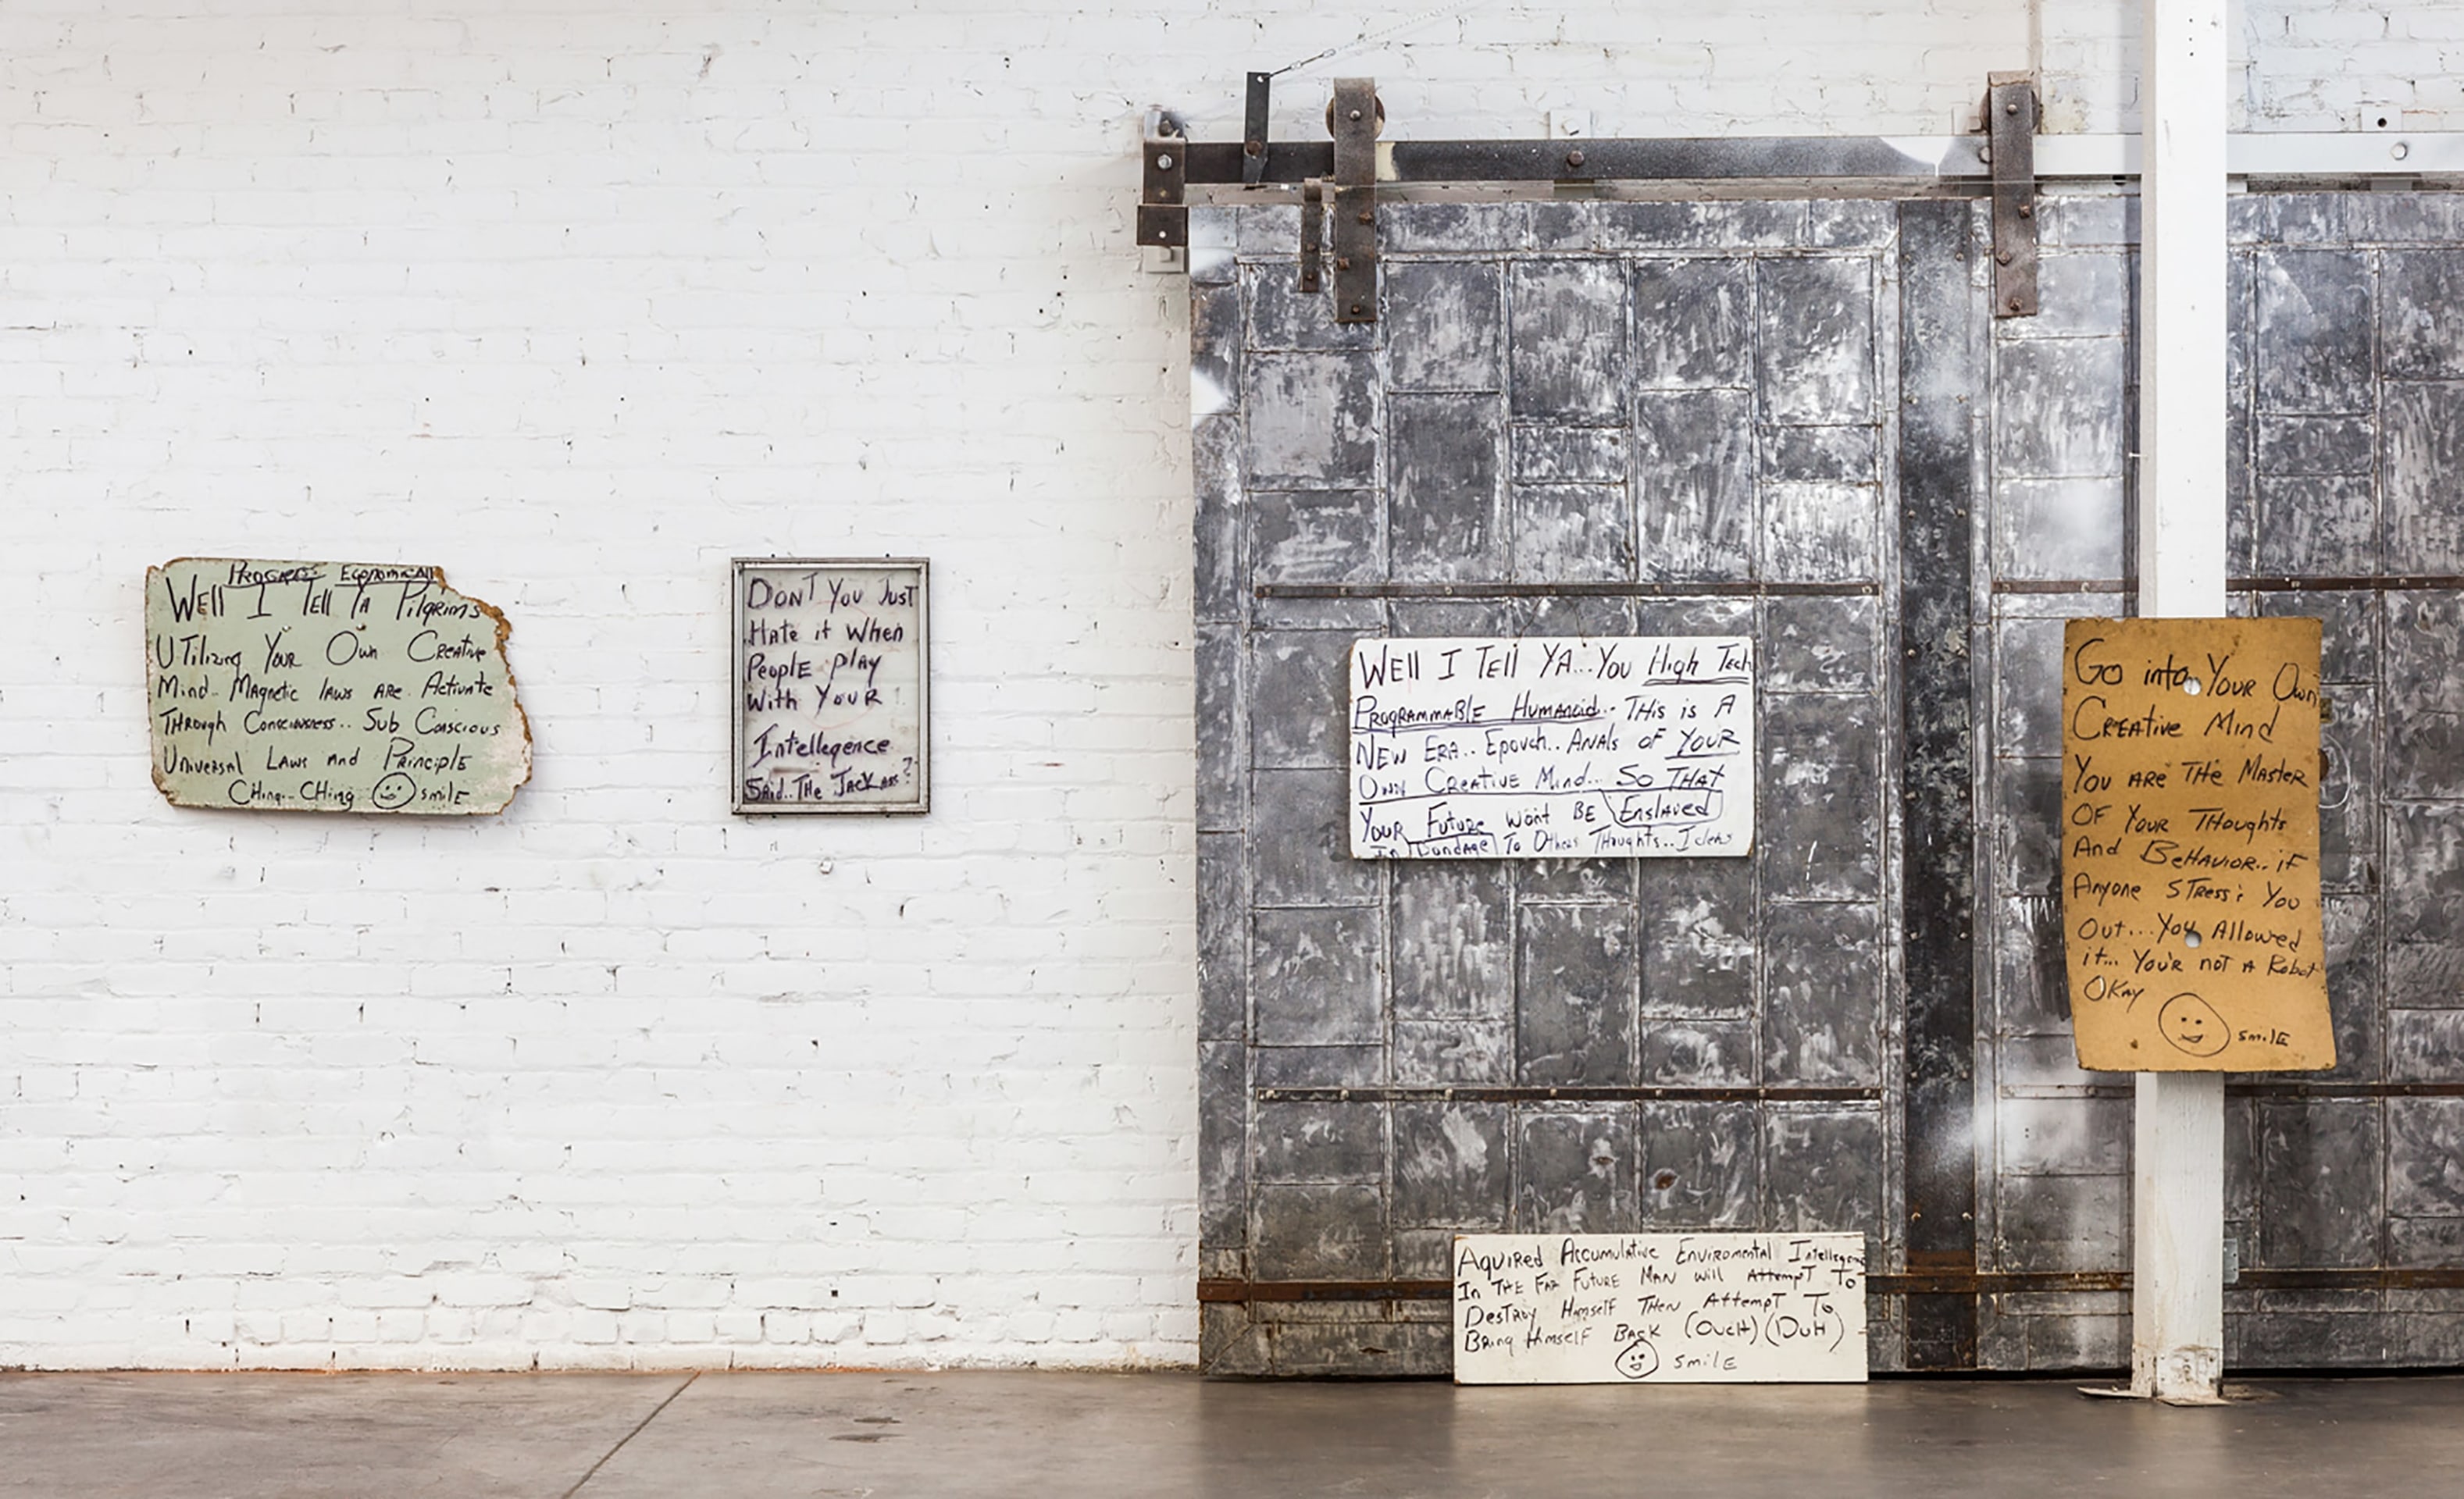 Progress Economically
Well I Tell Ya Pilgrims
Utilizing Your Own Creative
Mind.. Magnetic laws are Activate
Through Consciousness.. Sub Conscious
Universal Laws and Principle
Ching.. Ching smile
Don't You Just
Hate it When
People play
With Your
Intellegence
Said.. The Jackass?
Well I Tell Ya... You High Tech
Programmable Humanoid.. This is A
New Era.. Epouch.. Anals of Your
Own Creative Mind... So That
Your Future Won't Be Enslaved
In Bondage To Others Thoughts.. Ideas
Aquired Accumulative Enviromental Intellegence
In The Far Future Man Will Attempt To
Destroy Himself Then Attempt To
Bring Himself Back (Ouch) (Duh)
smile
Go into Your Own
Creative Mind
You are The Master
Of Your Thoughts
And Behavior.. if
Anyone Stress: You
Out... You Allowed
it... Your not A Robot
Okay
smile